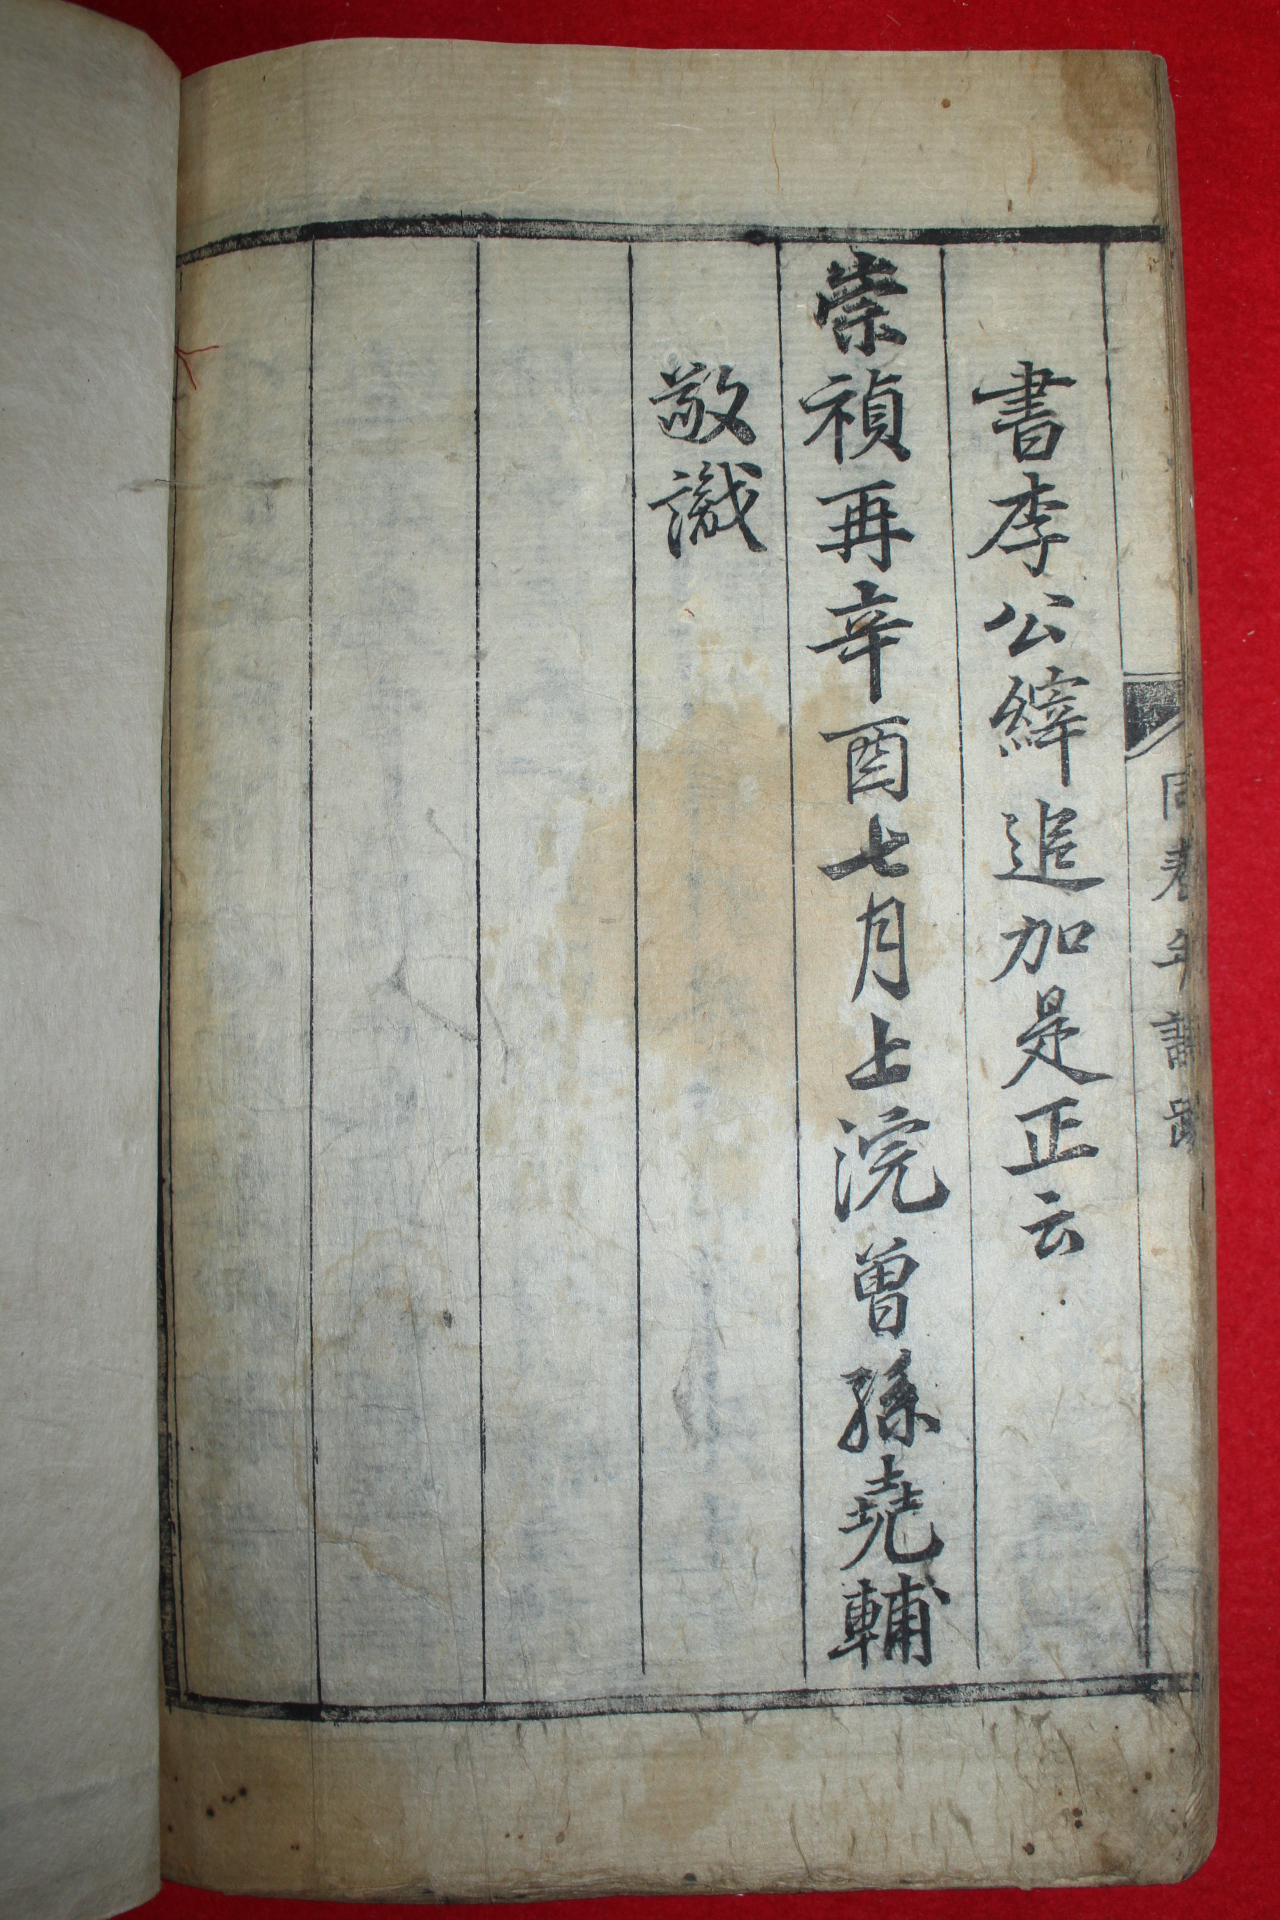 書李公縡追加是正云
崇禎再辛酉七月上浣曾孫堯輔
敬識
同春年譜跋